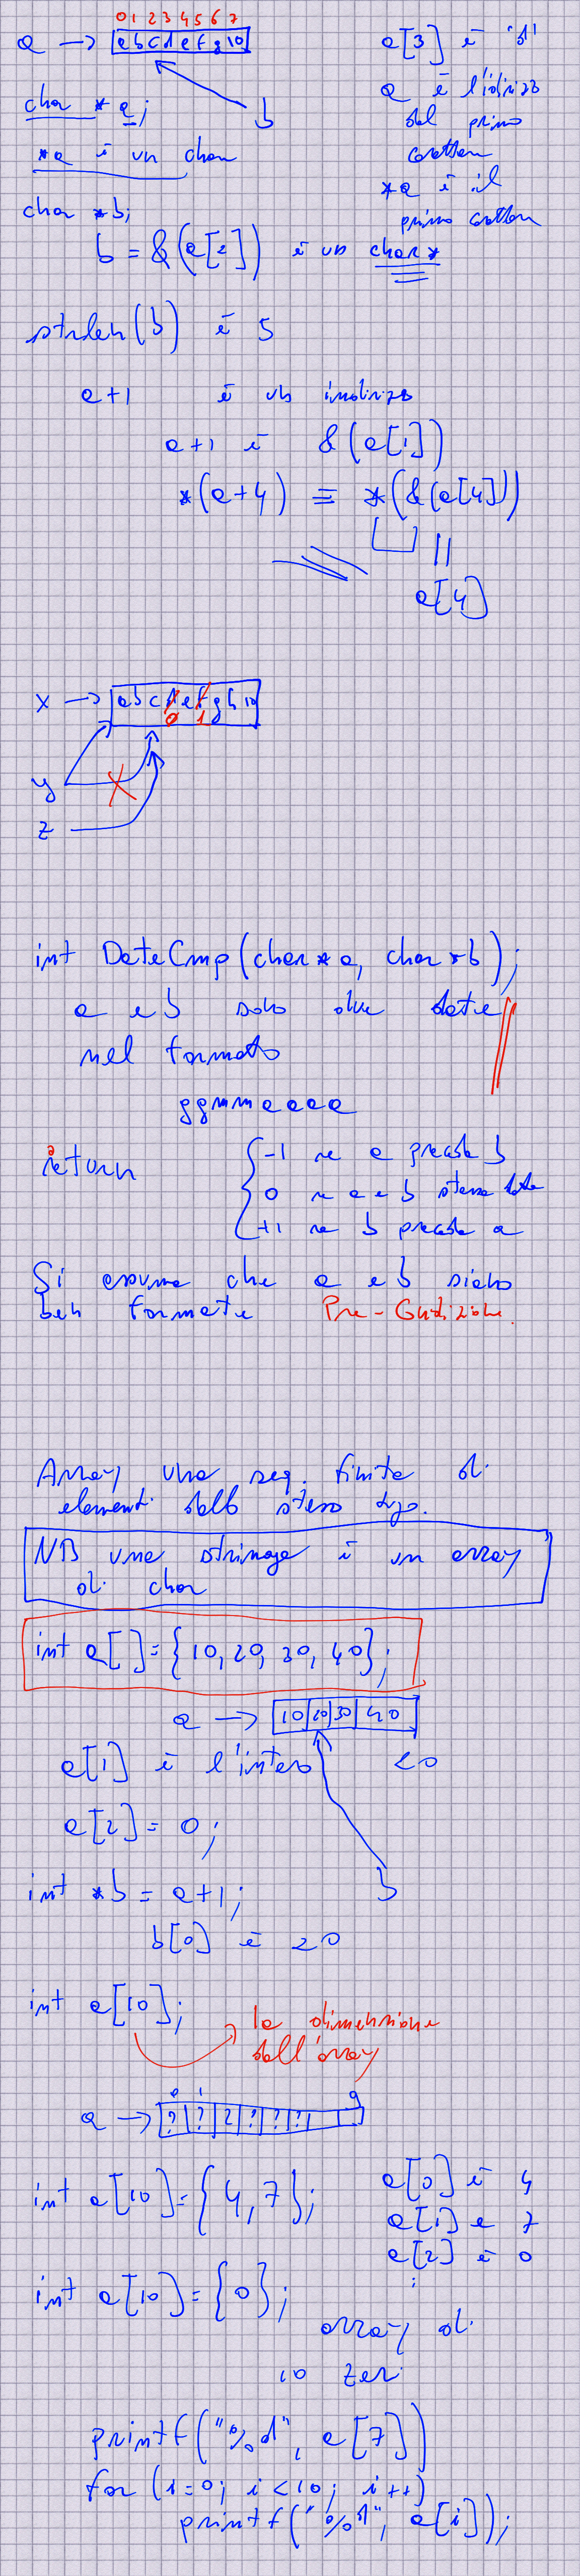 0 1 2 3 4 5 6 7
a → abcdefg\0
a[3] è 'd'
char * a;
b
a è l'idirizo
del primo
carattere
*a è un char
*a è il
primo carattere
char *b;
b = &(a[2]) è un char*
strlen(b) è 5
a+1 è un indirizo
a+1 è &(a[1])
*(a+4) ≡ *(&(a[4]))
||
a[4]
x → abcdefgh\0
0 1
y
z
int DateCmp(char *a, char *b);
a e b sono due date
nel formato
ggmmaaaa
return
-1 se a precede b
0 se a e b stessa data
+1 se b precede a
Si assume che a e b siano
ben formate Pre-Condizione.
Array una seq. finita di
elementi dello stesso tipo.
NB una stringa è un array
di char
int a[]={10, 20, 30, 40};
a → 10 20 30 40
a[1] è l'intero 20
a[2] = 0;
b
int *b = a+1;
b[0] è 20
int a[10];
la dimensione
dell'array
0 1 9
a → ? ? ? ? ? ?
int a[10]={4,7};
a[0] è 4
a[1] e 7
a[2] è 0
:
int a[10]={0};
array di
10 zeri
printf("%d", a[7])
for (i=0; i<10; i++)
printf("%d", a[i]);